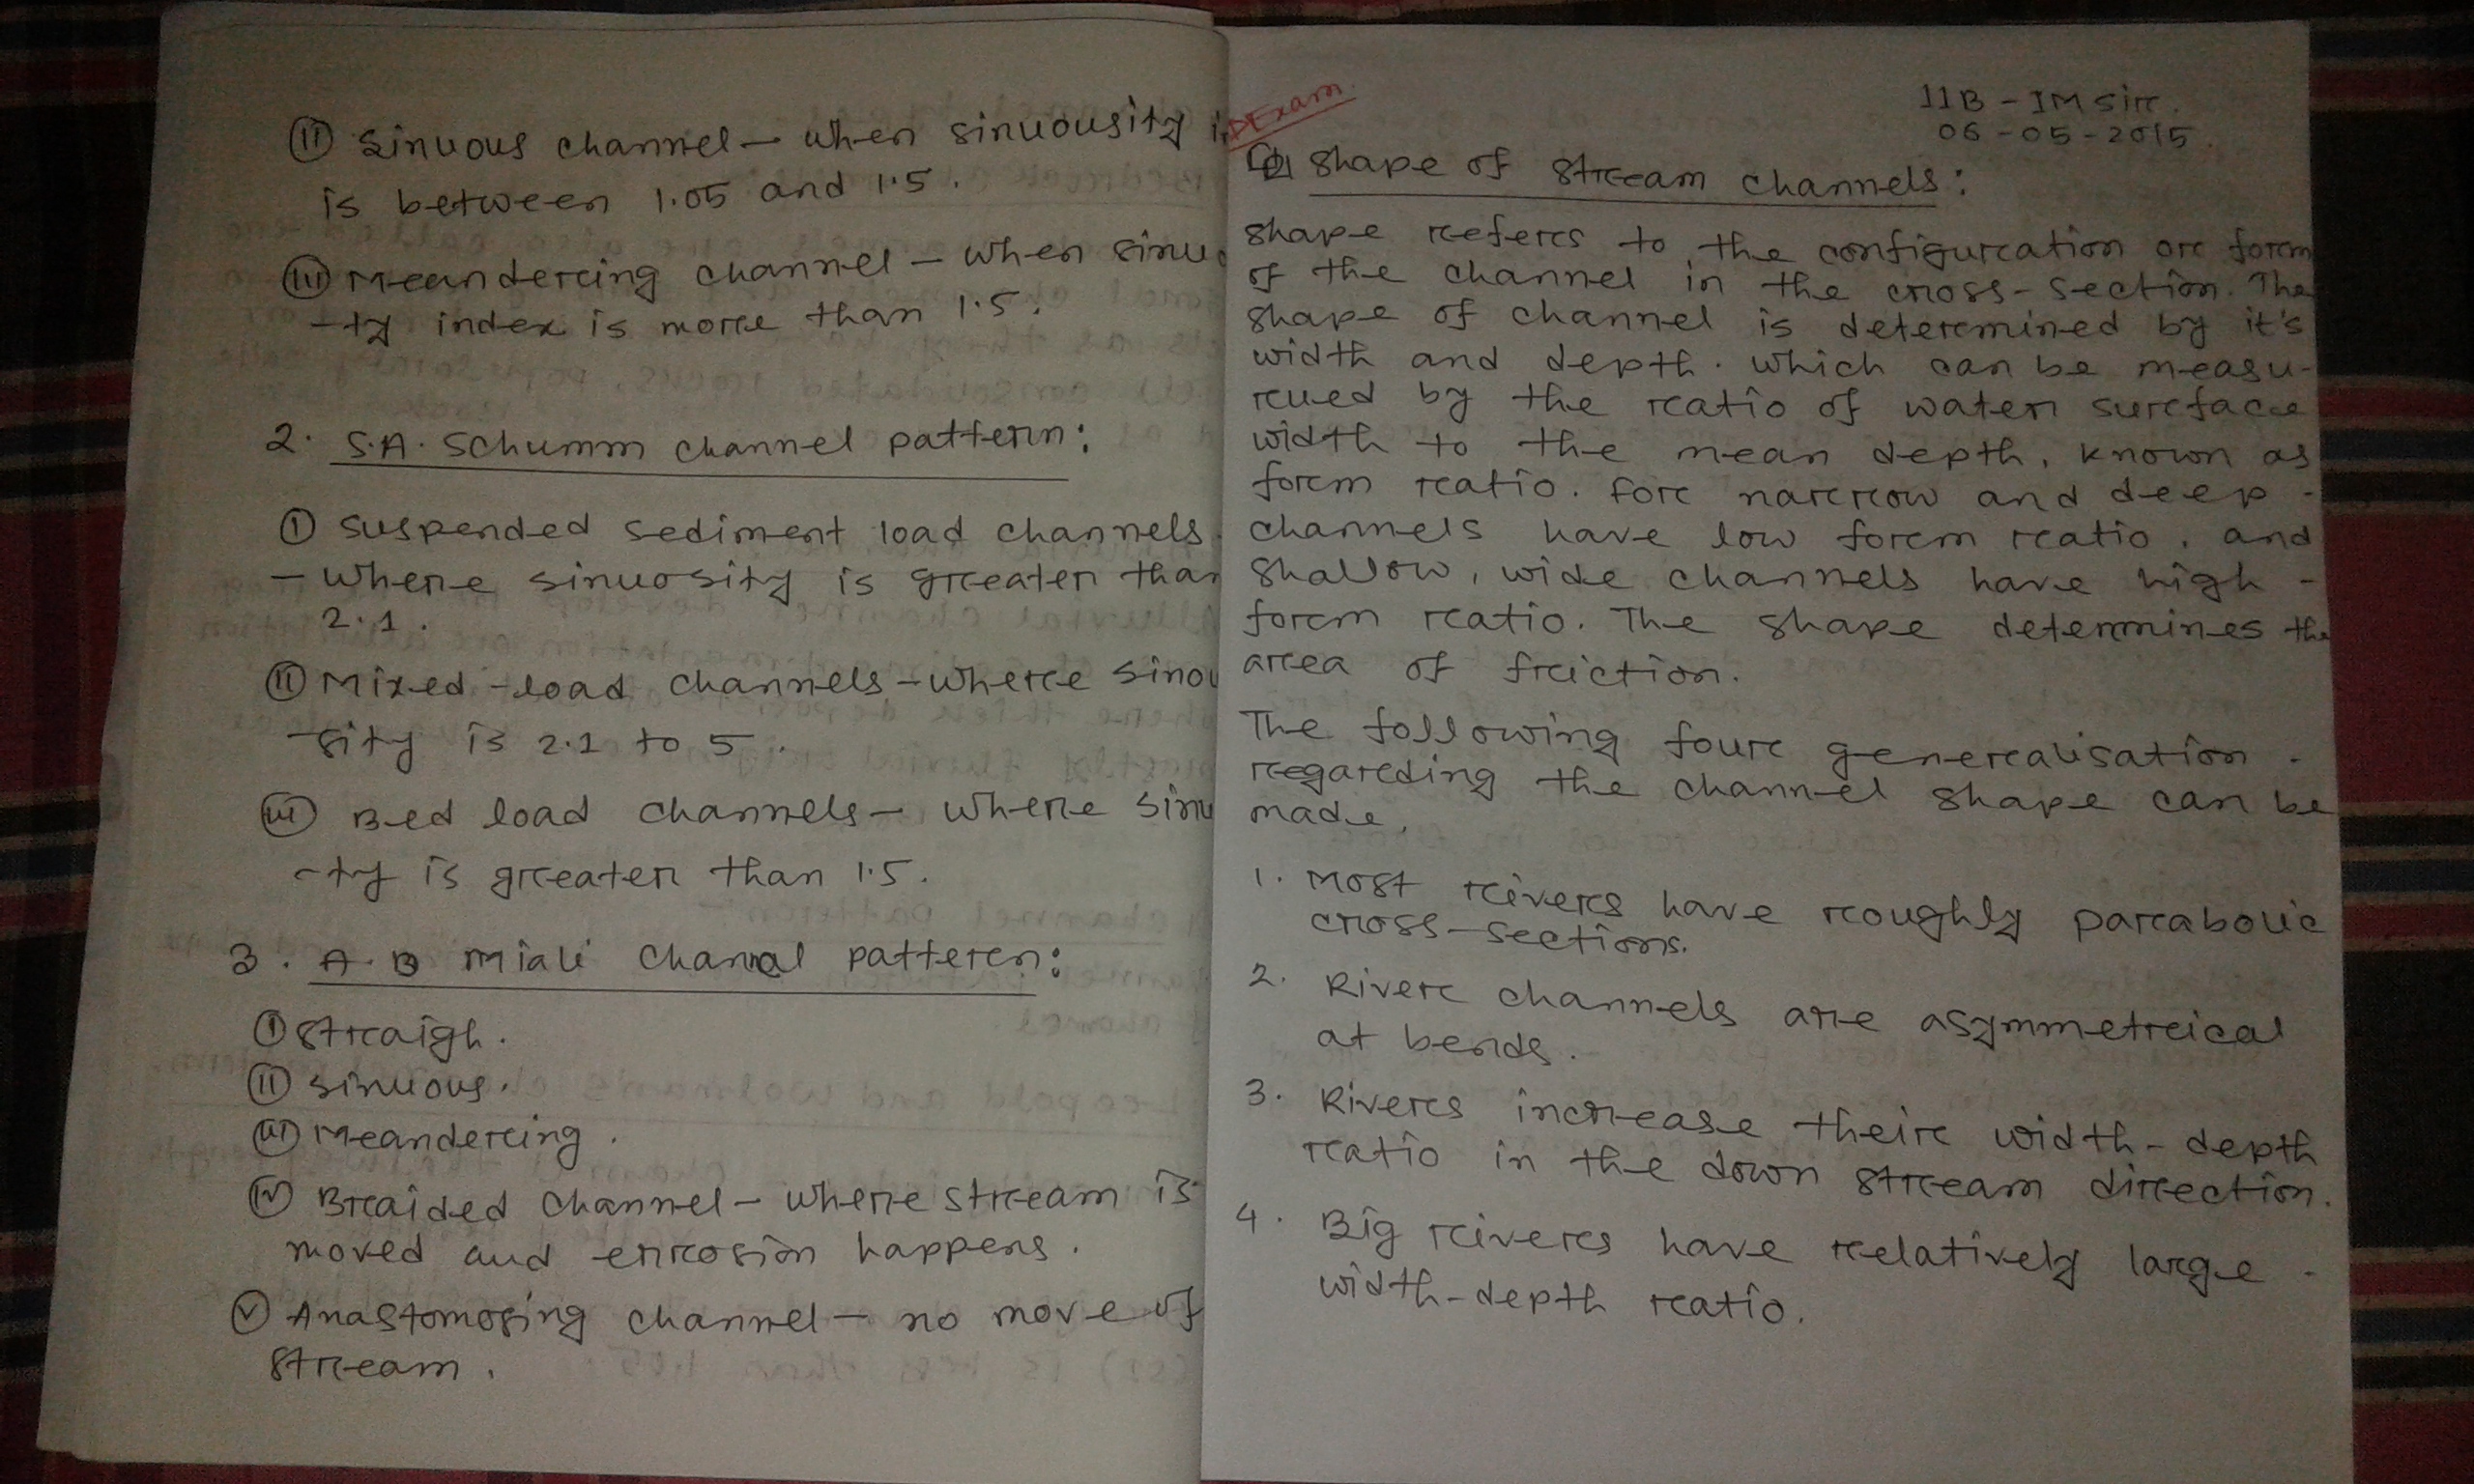 II Sinuous channel - when sinuousity i
is between 1.05 and 1.5.
III Meandering channel - when sinuo
-ty index is more than 1.5.
2. S.A. Schumm channel pattern:
I Suspended sediment load channels
- where sinuosity is greater than
2.1.
II Mixed-load channels - where sinou
-sity is 2.1 to 5.
III Bed load channels - where sinu
-ty is greater than 1.5.
3. A.B Miali channal pattern:
I Straigh.
II sinuous.
III Meandering.
IV Braided channel - where stream is
moved and errosion happens.
V Anastomosing channel - no move of
stream.
Exam.
11B - IM Sir.
06-05-2015.
Shape of stream channels:
Shape refers to the configuration or form
of the channel in the cross-section. The
shape of channel is determined by it's
width and depth. which can be measu-
rued by the ratio of water surface
width to the mean depth, known as
form ratio. for narrow and deep -
channels have low form ratio, and
shallow, wide channels have high -
form ratio. The shape determines the
area of friction.
The following four generalisation -
regarding the channel shape can be
made,
1. Most rivers have roughly parabolic
cross-sections.
2. River channels are asymmetrical
at bends.
3. Rivers increase their width-depth
ratio in the down stream direction.
4. Big rivers have relatively large -
width-depth ratio.